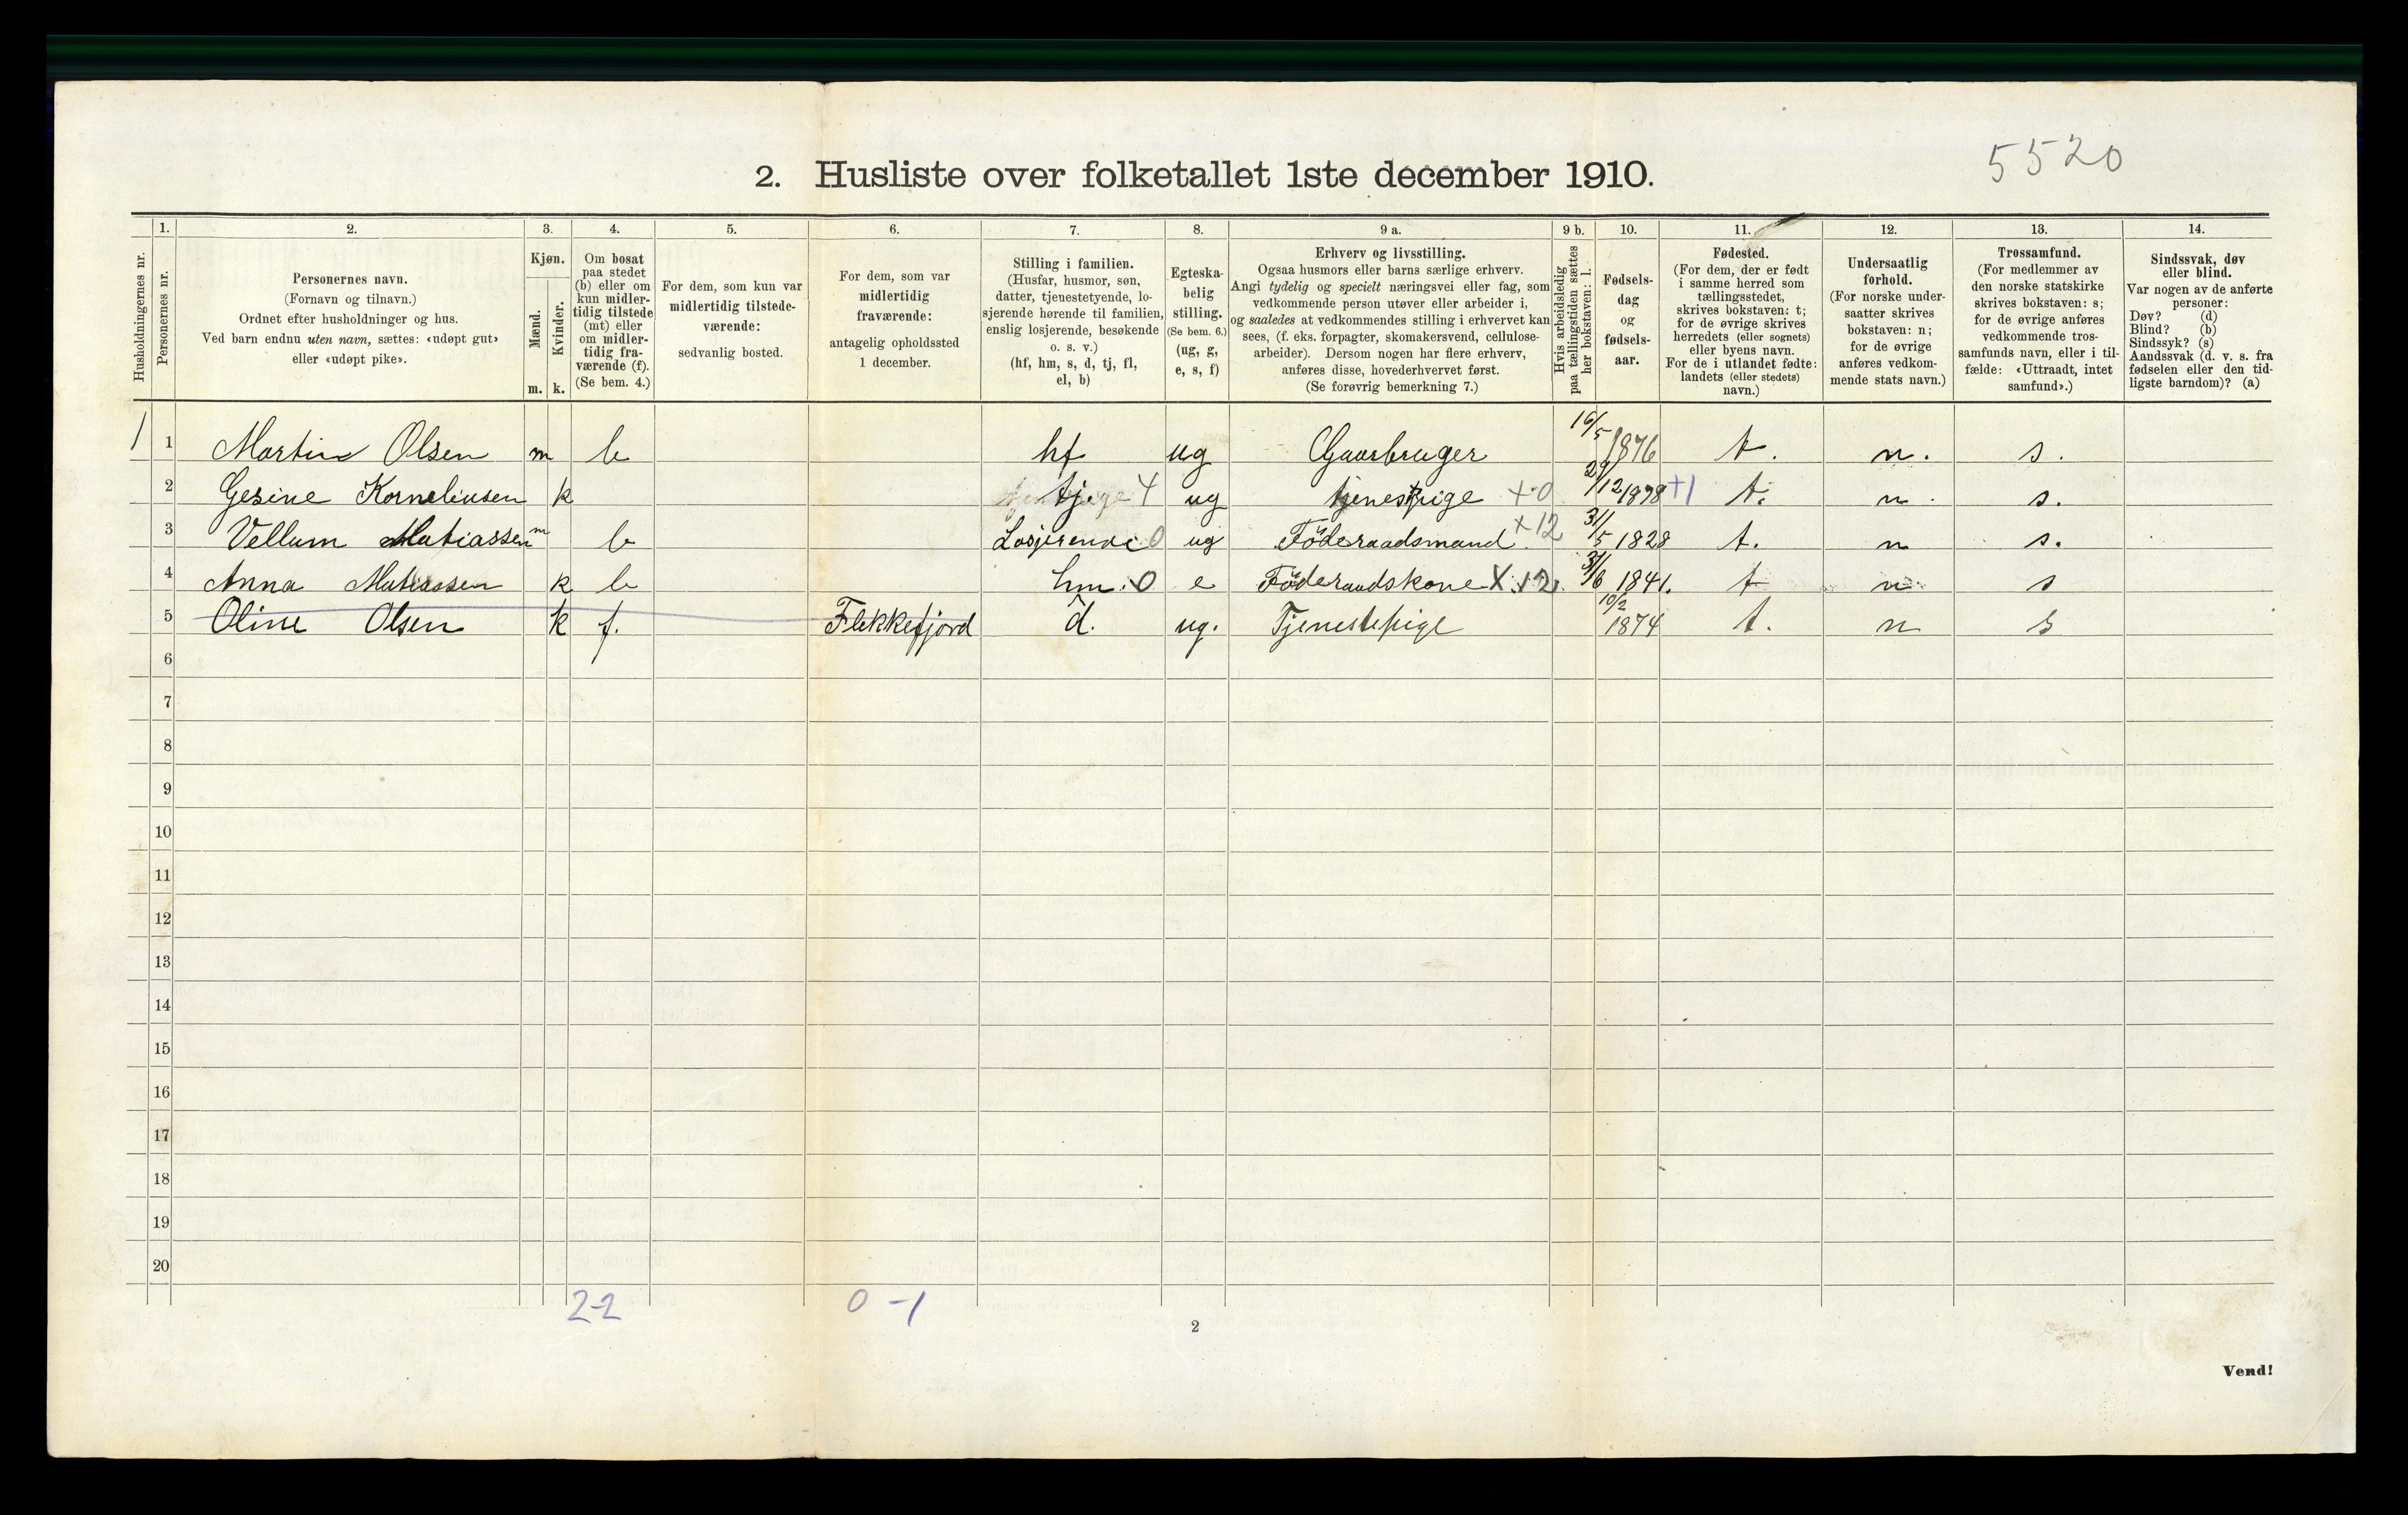 5520
2. Husliste over folketallet 1ste december 1910.
Husholdningernes nr.
1.
Personernes nr.
2.
Personernes navn.
(Fornavn og tilnavn.)
Ordnet efter husholdninger og hus.
Ved barn endnu uten navn, sættes: «udøpt gut»
eller «udøpt pike».
3.
Kjøn.
Mænd.
m.
Kvinder.
k.
4.
Om bosat
paa stedet
(b) eller om
kun midler-
tidig tilstede
(mt) eller
om midler-
tidig fra-
værende (f).
(Se bem. 4.)
5.
For dem, som kun var
midlertidig tilstede-
værende:
sedvanlig bosted.
6.
For dem, som var
midlertidig
fraværende:
antagelig opholdssted
1 december.
7.
Stilling i familien.
(Husfar, husmor, søn,
datter, tjenestetyende, lo-
sjerende hørende til familien,
enslig losjerende, besøkende
o. s. v.)
(hf, hm, s, d, tj, fl,
el, b)
8.
Egteska-
belig
stilling.
(Se bem. 6.)
(ug, g,
e, s, f)
9 a.
Erhverv og livsstilling.
Ogsaa husmors eller barns særlige erhverv.
Angi tydelig og specielt næringsvei eller fag, som
vedkommende person utøver eller arbeider i,
og saaledes at vedkommendes stilling i erhvervet kan
sees, (f. eks. forpagter, skomakersvend, cellulose-
arbeider). Dersom nogen har flere erhverv,
anføres disse, hovederhvervet først.
(Se forøvrig bemerkning 7.)
9 b.
Hvis arbeidsledig
paa tællingstiden sættes
her bokstaven: l.
10.
Fødsels-
dag
og
fødsels-
aar.
11.
Fødested.
(For dem, der er født
i samme herred som
tællingsstedet,
skrives bokstaven: t;
for de øvrige skrives
herredets (eller sognets)
eller byens navn.
For de i utlandet fødte:
landets (eller stedets)
navn.)
12.
Undersaatlig
forhold.
(For norske under-
saatter skrives
bokstaven: n;
for de øvrige
anføres vedkom-
mende stats navn.)
13.
Trossamfund.
(For medlemmer av
den norske statskirke
skrives bokstaven: s;
for de øvrige anføres
vedkommende tros-
samfunds navn, eller i til-
fælde: «Uttraadt, intet
samfund».)
14.
Sindssvak, døv
eller blind.
Var nogen av de anførte
personer:
Døv? (d)
Blind? (b)
Sindssyk? (s)
Aandssvak (d. v. s. fra
fødselen eller den tid-
ligste barndom)? (a)
1 1 Martin Olsen m b hf ug Gaarbruger 16/5 1876 t. n. s.
2 Gesine Korneliusen k tj 4 ug tjenestpige +0 29/12 1898 +1 t. n. s.
3 Vellum Matiassen m b Losjerende 0 ug Föderaadsmand +12 31/5 1828 t. n s.
4 Anna Matiassen k b hm. 0 e Föderaadskone X.12. 31/6 1841. t n s
5 Oline Olsen k f. Flekkefjord d. ug. Tjenestepige 10/2 1874 t. n s
6
7
8
9
10
11
12
13
14
15
16
17
18
19
20
2-2 0-1
2
Vend!